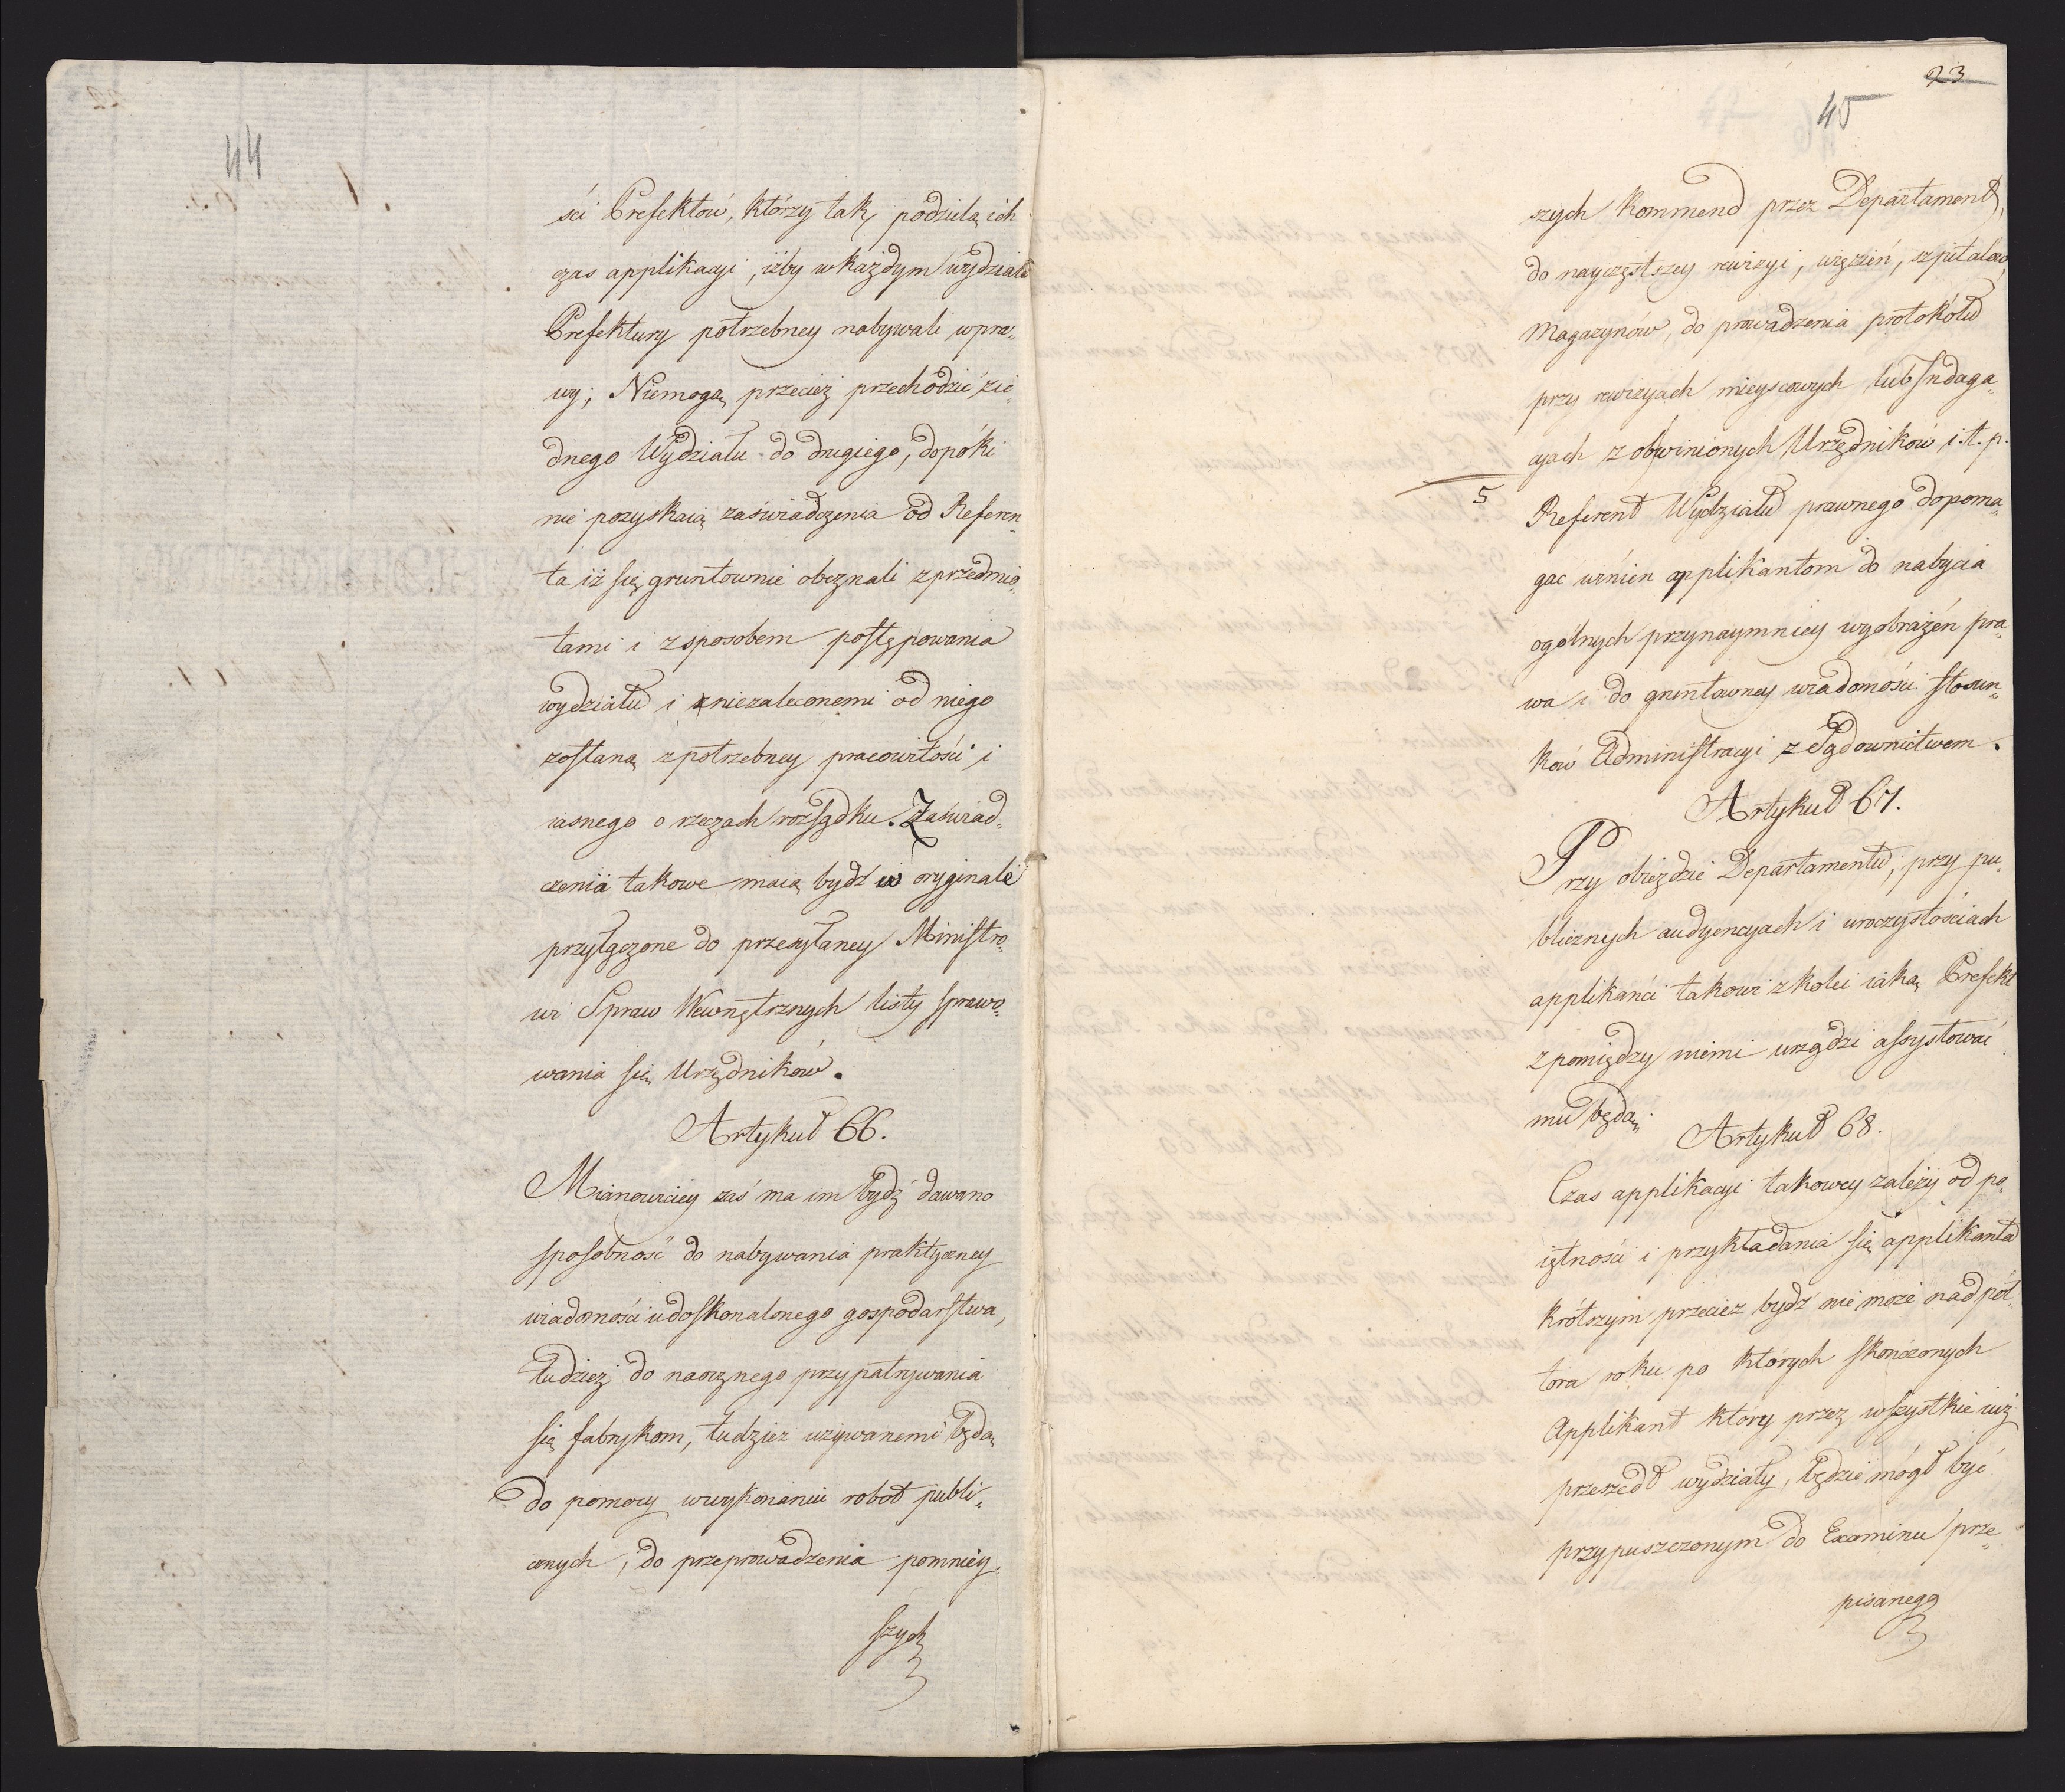 44
ści Prefektów, którzy tak podzielą ich
czas applikacyi, iżby w każdym wydziale
Prefektury potrzebney nabywali wpra„
wy; Niemogą przecież przechodzić z ie„
dnego Wydziału do drugiego, dopóki
nie pozyskaią zaświadczenia od Referen„
ta iż się gruntownie obeznali z przedmio„
tami i z sposobem postępowania
wydziału i niezaleconemi od niego
zostaną z potrzebney pracowitości i
iasnego o rzeczach rozsądku. Zaświad„
czenia takowe maią bydź w oryginale
przyłączone do przesyłaney Ministro„
wi Spraw Wewnętrznych listy sprawo„
wania się Urzędników.
Artykuł 66.
Mianowiciey zaś ma im bydź dawano
sposobność do nabywania praktyczney
wiadomości udoskonalonego gospodarstwa,
tudzież do naocznego przypatrywania
się fabrykom, tudzież używanemi będą
do pomocy w wykonaniu robot publi„
cznych, do przeprowadzenia pomniey„
szych
23
45
szych kommend przez Departament,
do nayczęstszey rewizyi, więzień, szpitalów,
Magazynów, do prowadzenia protokółu
przy rewizyach mieyscowych lub Indaga„
cyach z obwinionych Urzędników i.t.p.
5
Referent Wydziału prawnego dopoma„
gac winien applikantom do nabycia
ogólnych przynaymniey wyobrażeń pra„
wa i do gruntowney wiadomości stosun„
ków Administracyi z Sądownictwem.
Artykuł 67.
Przy obieździe Departamentu, przy pu„
blicznych audyencyach i uroczystościach
applikanci takowi z kolei iaką Prefekt
z pomiędzy niemi urządzi assystować
mu będą.
Artykuł 68.
Czas applikacyi takowey zależy od po„
iętności i przykładania się applikanta
krótszym przecież bydź nie może nad pół„
tora roku po których skończonych
Applikant który przez wszystkie iuż
przeszedł wydziały, będzie mógł być
przypuszczonym do Examinu prze„
pisanego